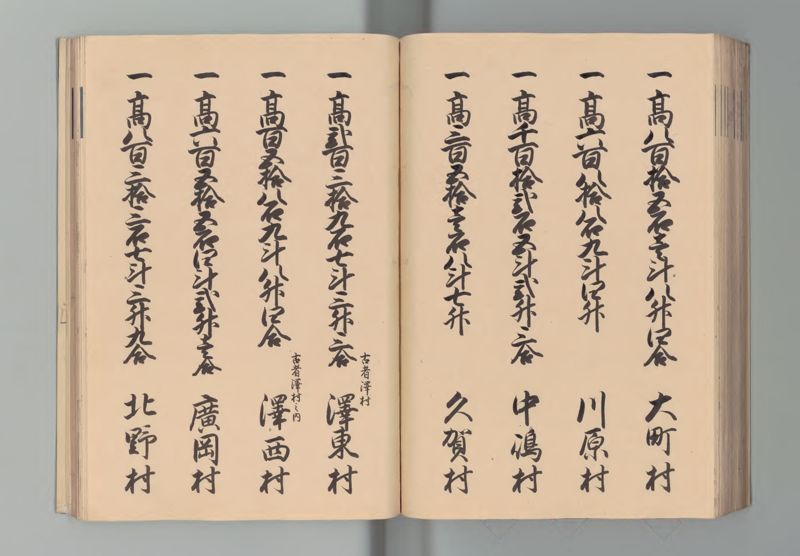 一 高八百拾五石壱斗八升四合 大町村
一 高六百八拾八石九斗四升 川原村
一 高千百拾弐石五斗弐升三合 中嶋村
一 高三百五拾壱石八斗七升 久賀村
古者澤村
一 高弐百三拾九石七斗三升三合 澤東村
古者澤村之内
一 高百五拾八石九斗八升四合 澤西村
一 高六百五拾五石四斗弐升壱合 廣岡村
一 高八百三拾三石七斗三升九合 北野村